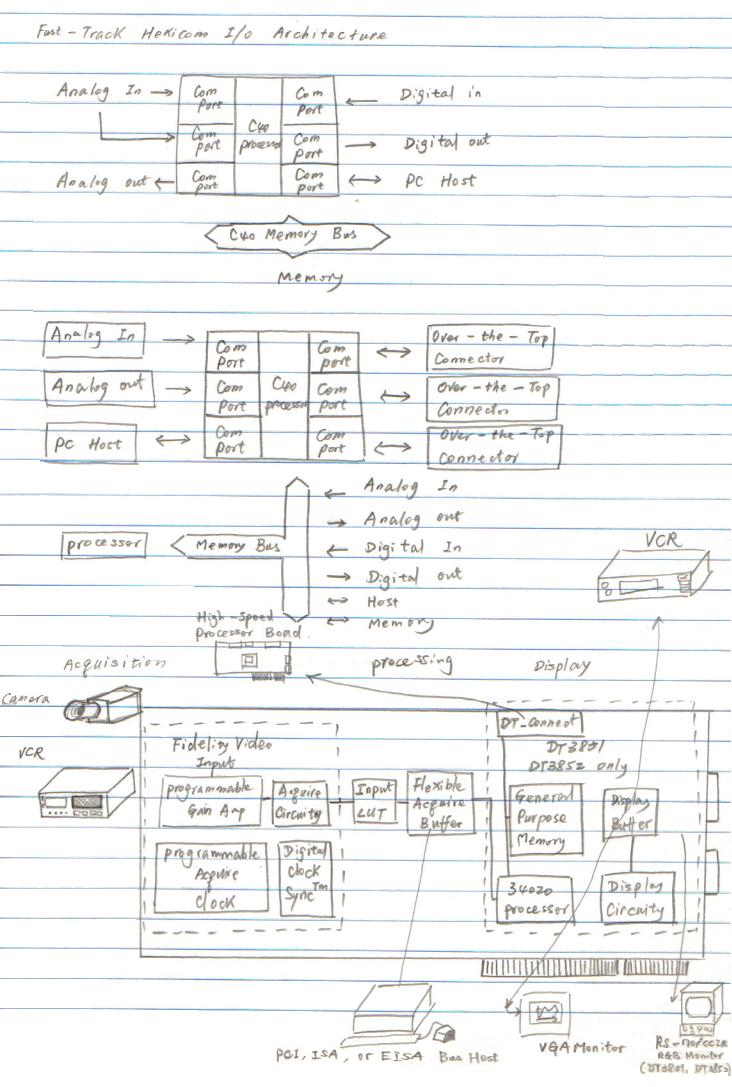 Fast-Track Hericom I/o Architecture
Analog In
Com Port
Com Port
Digital in
Com Port
C40 processor
Com Port
Digital out
Analog out
Com Port
Com Port
PC Host
C40 Memory Bus
Memory
Analog In
Com Port
Com port
Over-the-Top Connector
Analog out
Com Port
C40 processor
Com Port
Over-the-Top Connector
PC Host
Com Port
Com Port
Over-the-Top Connector
Analog In
Analog out
processor
Memory Bus
Digital In
Digital out
Host
Memory
VCR
High-speed
Processor Boad.
Acquisition
processing
Display
Camera
VCR
Fidelity Video
Input
programmable
Gain Amp
Acquire
Circuity
Input
LUT
Flexible
Acquire
Buffer
DT-connect
DT3851
DT3852 only
General
Purpose
Memory
Display
Buffer
programmable
Acquire
Clock
Digital
clock
Sync™
34020
processor
Display
Circuity
PCI, ISA, or EISA Bus Host
VGA Monitor
RGB Monitor